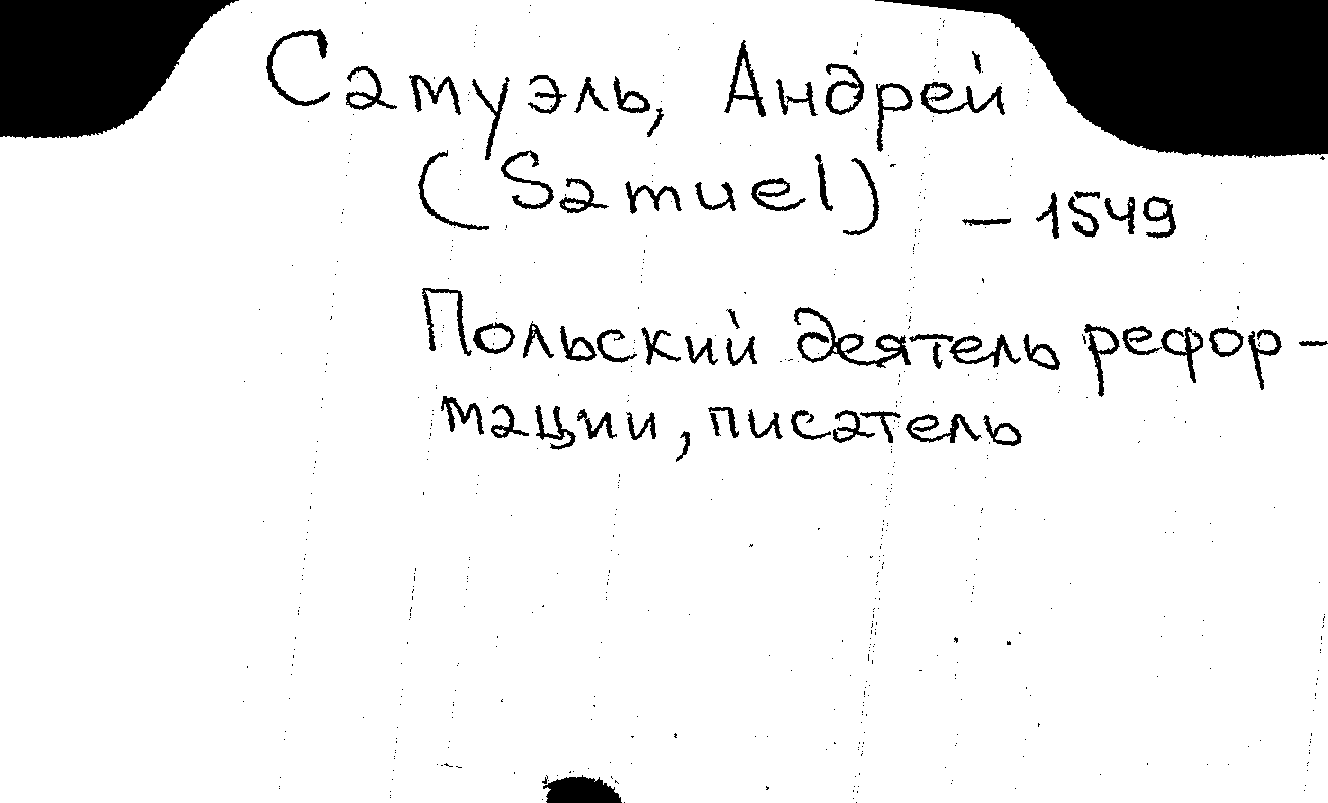 Самуэль, Андрей
(Samuel) — 1549
Польский деятель рефор-
мации, писатель